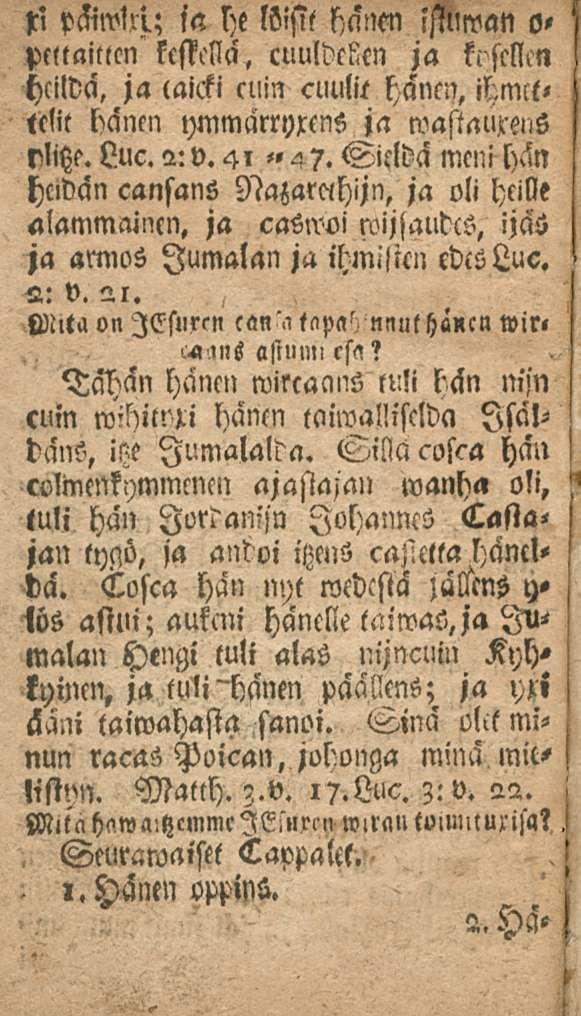 xi päiwäxi; ja he löisit hänen istuwan o-
pettaitten keskellä, cuuldellen ja kysellen
heildä, ja caicki cuin cuulit hänen, ihmet-
telit hänen ymmärryxens ja wastauxens
ylitze. Luc. 2: v. 41 - 47. Sieldä meni hän
heidän cansans Nazarethijn, ja oli heille
alammainen, ja caswoi wijsaudes, ijäs
ja armos Jumalan ja ihmisten edes Luc.
2: v. 21.
Mitä on JEsuxen cansa tapahtunut hänen wir-
caans astumisesa?
Tähän hänen wircaans tuli hän nijn
cuin wihityxi hänen taiwalliselda Isäl-
däns, itze Jumalalda. Sillä cosca hän
colmenkymmenen ajastajan wanha oli,
tuli hän Jordanijn Johannes Casta-
jan tygö, ja andoi itzens castetta hänel-
dä. Cosca hän nyt wedestä jällens y-
lös astui; aukeni hänelle taiwas, ja Ju-
malan Hengi tuli alas nijncuin Kyh-
kyinen, ja tuli hänen päällens; ja yxi
ääni taiwahasta sanoi. Sinä olet mi-
nun racas Poican, johonga minä mie-
listyn. Matth. 3. v. 17. Luc. 3: v. 22.
Mitä hawaitzemme JEsuxen wiran toimituxisa?
Seurawaiset Cappalet.
1. Hänen oppins.
2. Hä-